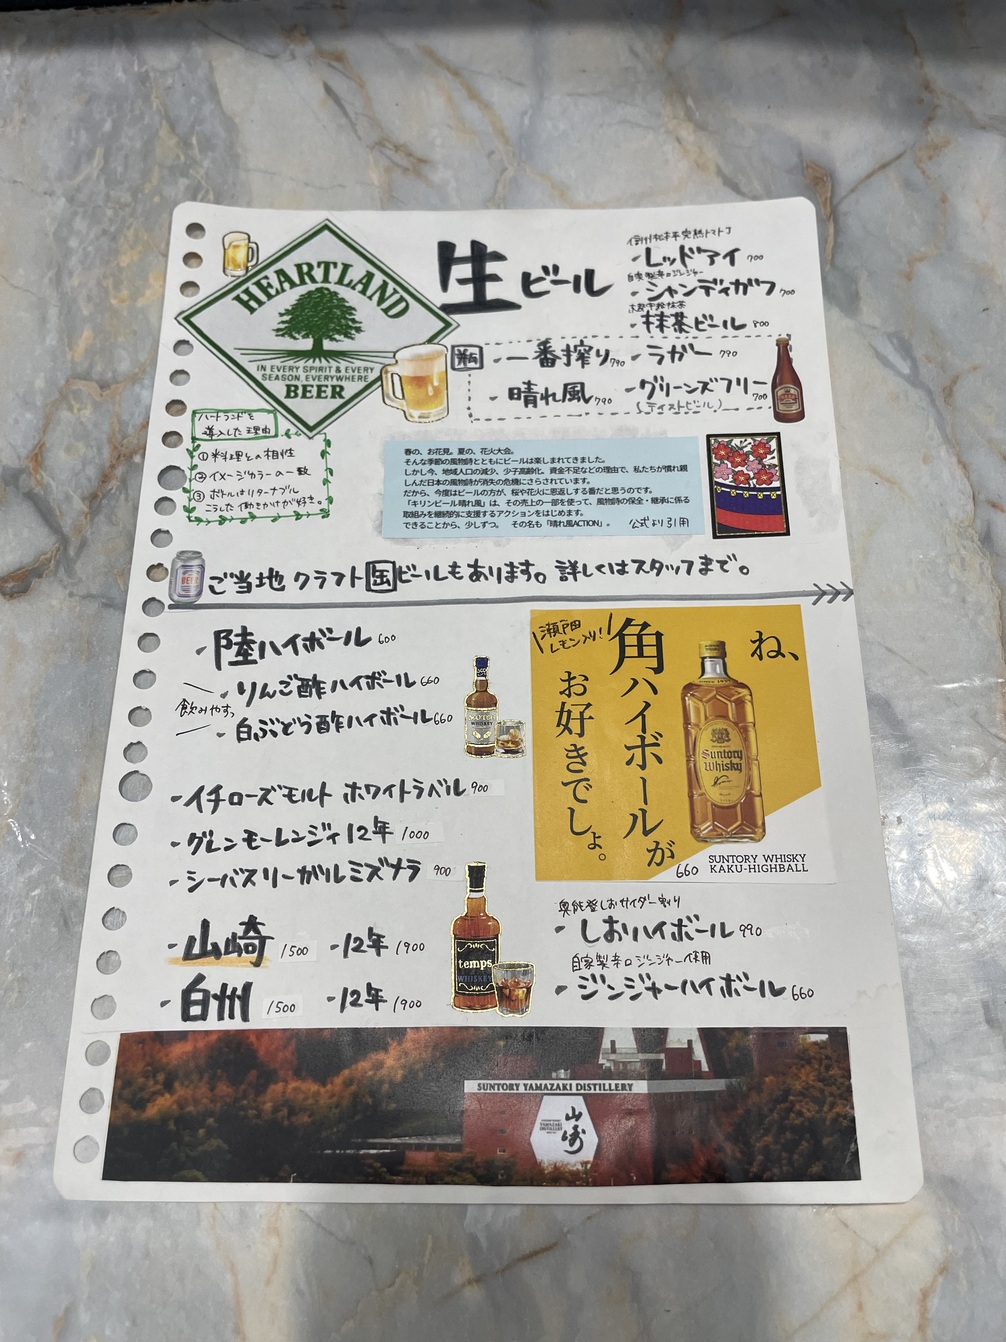 HEARTLAND
IN EVERY SPIRIT & EVERY
SEASON, EVERYWHERE
BEER
生ビール
レッドアイ 700
自家製辛口ジンジャー
シャンディガフ 700
抹茶ビール 800
瓶
・一番搾り 790
・ラガー 790
・晴れ風 790
・グリーンズフリー 700
(テイストビール)
ハートランドを
導入した理由
①料理との相性
②イメージカラーの一致
③ボトルはリターナブル
こうした働きかけが好き。
春の、お花見。夏の、花火大会。
そんな季節の風物詩とともにビールは楽しまれてきました。
しかし今、地域人口の減少、少子高齢化、資金不足などの理由で、私たちが慣れ親
しんだ日本の風物詩が消失の危機にさらされています。
だから、今度はビールの方が、桜や花火に恩返しする番だと思うのです。
「キリンビール晴れ風」は、その売上の一部を使って、風物詩の保全・継承に係る
取組みを継続的に支援するアクションをはじめます。
できることから、少しずつ。 その名も「晴れ風ACTION」。
公式より引用
BEER
ご当地クラフト缶ビールもあります。詳しくはスタッフまで。
・陸ハイボール 600
飲みやすっ
・りんご酢ハイボール 660
・白ぶどう酢ハイボール 660
・イチローズモルト ホワイトラベル 900
・グレンモーレンジィ12年 1000
・シーバスリーガルミズナラ 900
・山崎 1500
・12年 1900
・白州 1500
・12年 1900
WHISKY
temps
WHISKEY
瀬戸田
レモン入り!
ね、
角ハイボールが
お好きでしょ。
Suntory
Whisky
660
SUNTORY WHISKY
KAKU-HIGHBALL
奥能登しおサイダー割り
・しおハイボール 990
自家製辛口ジンジャー使用
・ジンジャーハイボール 660
SUNTORY YAMAZAKI DISTILLERY
山崎